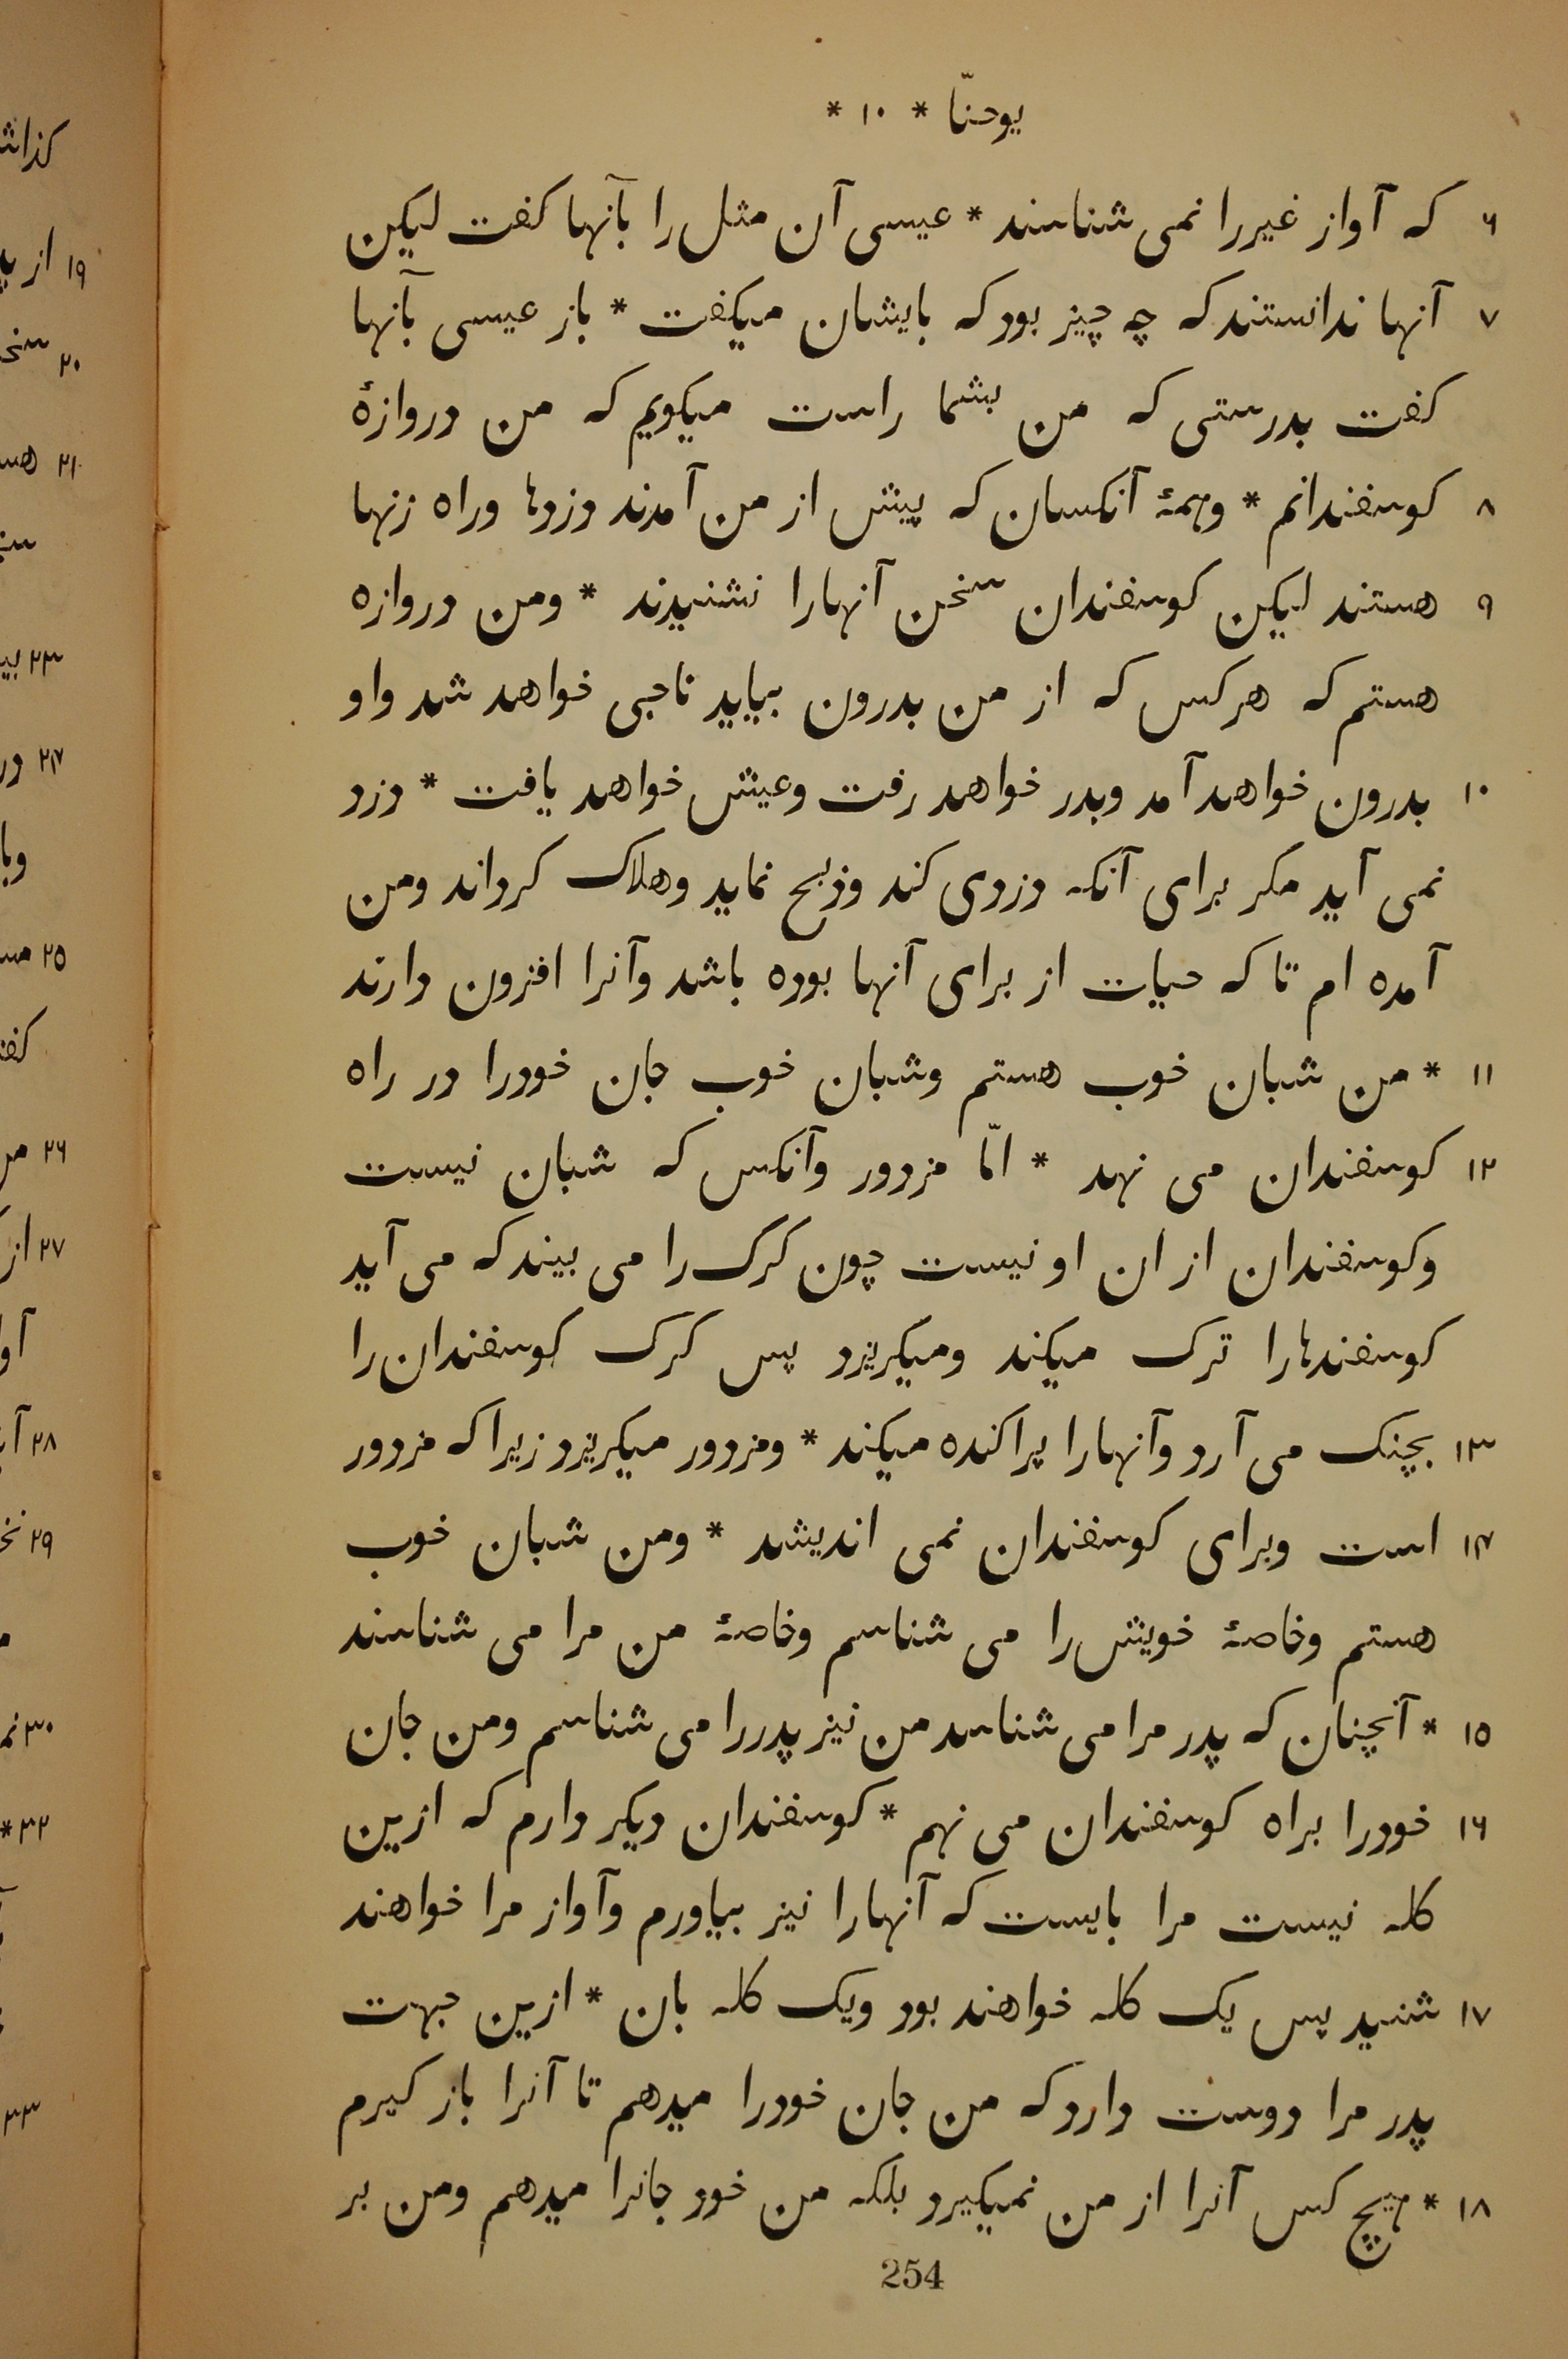 یوحنّا * ۱۰ *
۶ که آواز غیررا نمی شناسند * عیسی آن مثل را بآنها کفت لیکن
۷ آنها ندانستند که چه چیز بود که بایشان میکفت * باز عیسی بآنها
کفت بدرستی که من بشما راست میکویم که من دروازهٔ
۸ کوسفندانم * وهمهٔ آنکسان که پیش از من آمدند دزدها وراه زنها
۹ هستند لیکن کوسفندان سخن آنهارا نشنیدند * ومن دروازه
هستم که هرکس که از من بدرون بیاید ناجی خواهد شد واو
۱۰ بدرون خواهد آمد وبدر خواهد رفت وعیش خواهد یافت * دزد
نمی آید مکر برای آنکه دزدی کند وذبح نماید وهلاک کرداند ومن
آمده ام تا که حیات از برای آنها بوده باشد وآنرا افزون دارند
۱۱ * من شبان خوب هستم وشبان خوب جان خودرا در راه
۱۲ کوسفندان می نهد * امّا مزدور وآنکس که شبان نیست
وکوسفندان از ان او نیست چون کرک را می بیند که می آید
کوسفندهارا ترک میکند ومیکریزد پس کرک کوسفندان را
۱۳ بچنک می آرد وآنهارا پراکنده میکند * ومزدور میکریزد زیرا که مزدور
۱۴ است وبرای کوسفندان نمی اندیشد * ومن شبان خوب
هستم وخاصهٔ خویش را می شناسم وخاصهٔ من مرا می شناسند
۱۵ * آنچنان که پدر مرا می شناسد من نیز پدررا می شناسم ومن جان
۱۶ خودرا براه کوسفندان می نهم * کوسفندان دیکر دارم که ازین
کله نیست مرا بایست که آنهارا نیز بیاورم وآواز مرا خواهند
۱۷ شنید پس یک کله خواهند بود ویک کله بان * ازین جهت
پدر مرا دوست دارد که من جان خودرا میدهم تا آنرا باز کیرم
۱۸ * هیچ کس آنرا از من نمیکیرد بلکه من خود جانرا میدهم ومن بر
254